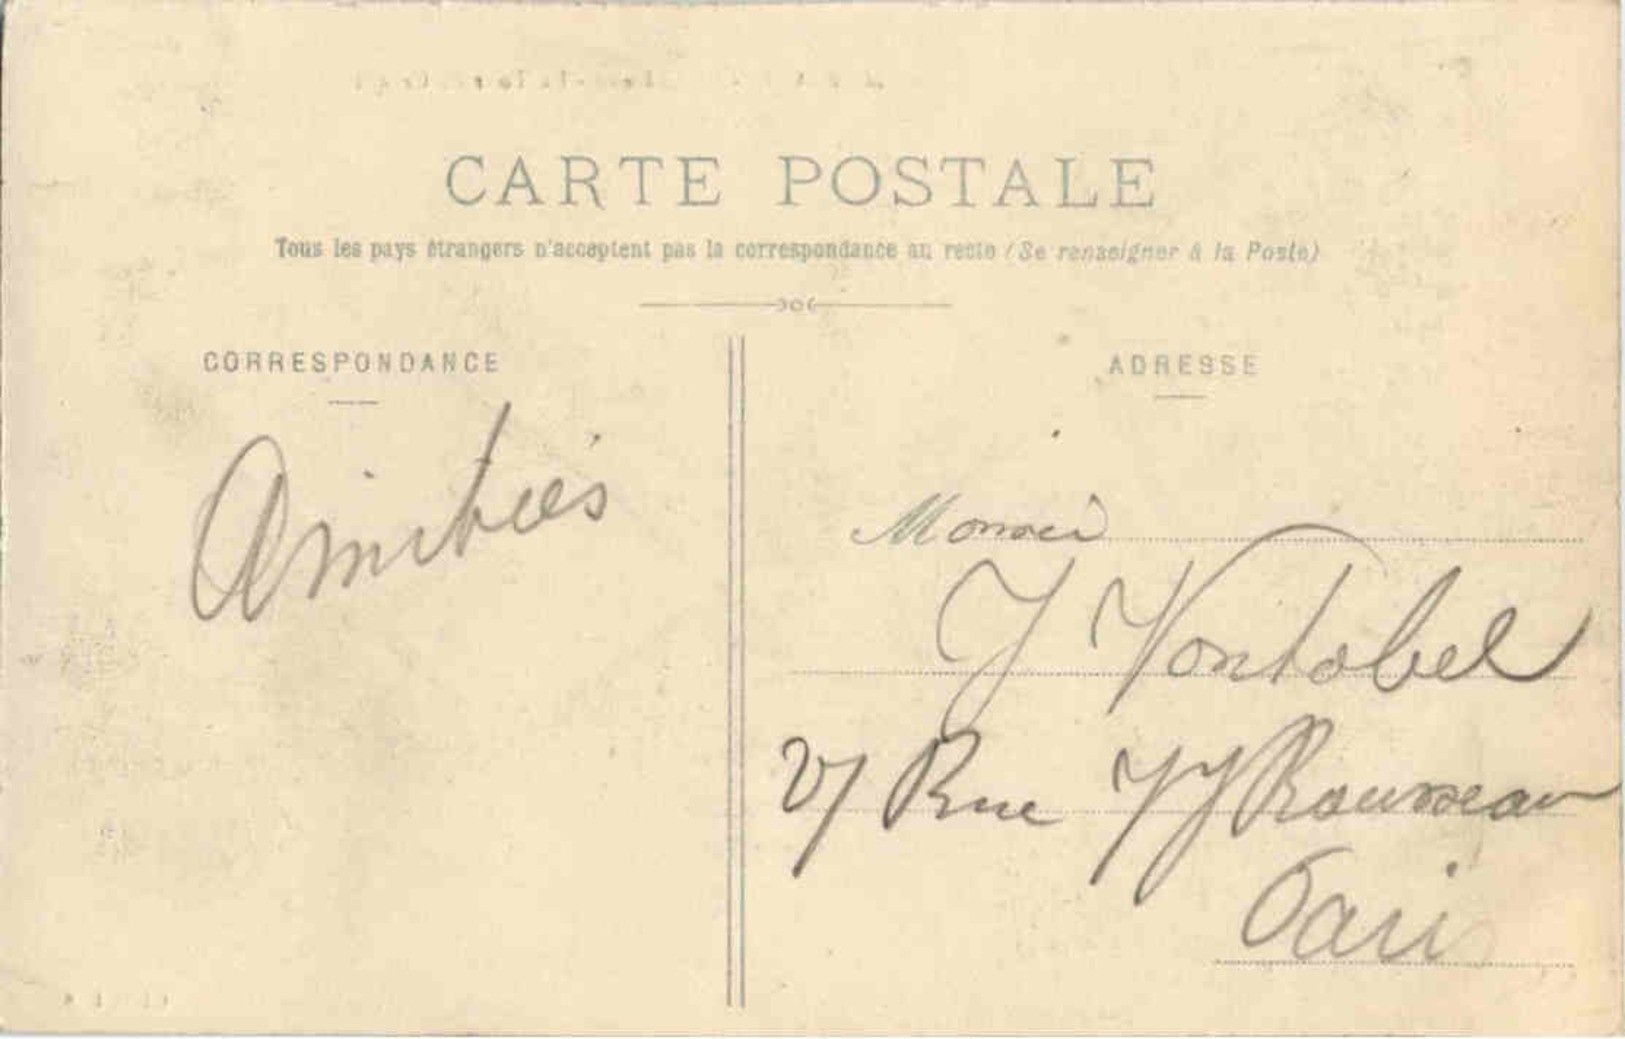 CARTE POSTALE
Tous les pays étrangers n'acceptent pas la correspondance au recto (Se renseigner à la Poste)
CORRESPONDANCE
ADRESSE
Amitiés
J Vontobel
Rue JJ Rousseau
Paris